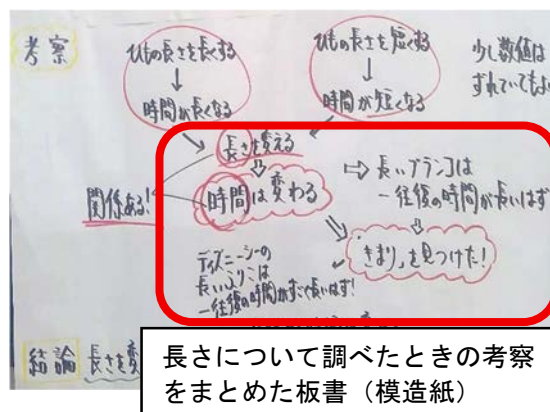 考察
ひもの長さを長くする
↓
時間が長くなる
ひもの長さを短くする
↓
時間が短くなる
少し数値は
ずれていてもよい
長さを変える
⇩
時間は変わる
関係ある!
⇨ 長いブランコは
一往復の時間が長いはず
⇩
「きまり」を見つけた!
ディズニーシーの
長いふりこは
一往復の時間がすごく長いはず!
結論 長さを変
長さについて調べたときの考察
をまとめた板書（模造紙）